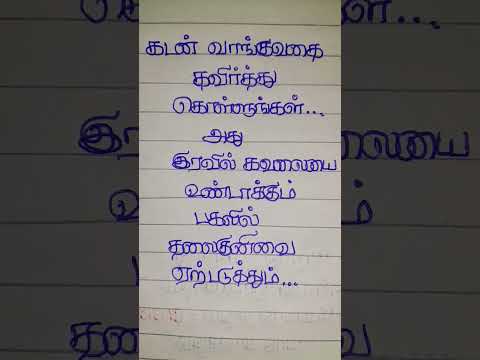 கடன் வாங்குவதை
தவிர்த்து
கொள்ளுங்கள்...
அது
இரவில் கவலையை
உண்டாக்கும்
பகலில்
தலைகுனிவை
ஏற்படுத்தும்...